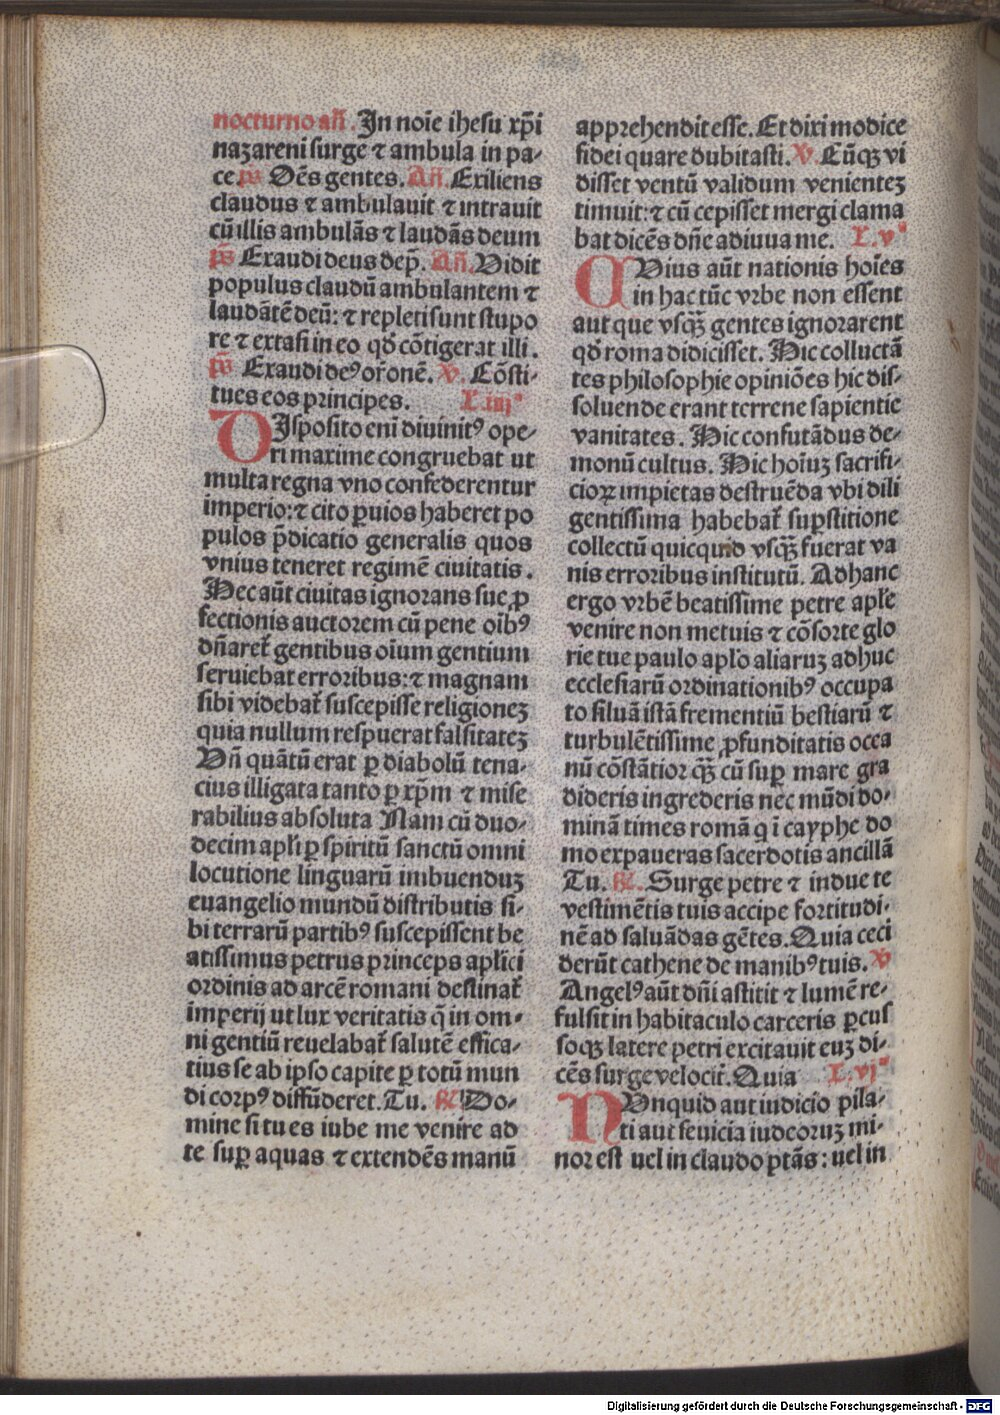 nocturno añ. In noīe ihesu xp̄i
nazareni surge ⁊ ambula in pa⸗
ce. ps̄ Oēs gentes. Añ. Exiliens
claudus ⁊ ambulauit ⁊ intrauit
cū illis ambulās ⁊ laudās deum
ps̄ Exaudi deus dep̄. Añ. Vidit
populus claudū ambulantem ⁊
laudātē deū: ⁊ repleti sunt stupo
re ⁊ extasi in eo qd̄ cōtigerat illi.
ps̄ Exaudi deꝰ or̄onē. ℣. Cōsti⸗
tues eos principes. L.iiijᵃ
DIsposito eni diuinitꝰ ope⸗
ri maxime congruebat ut
multa regna vno confederentur
imperio: ⁊ cito ꝑuios haberet po
pulos p̄dicatio generalis quos
vnius teneret regimē ciuitatis.
Hec aūt ciuitas ignorans sue ꝓ
fectionis auctorem cū pene oībꝰ
dn̄aret᷑ gentibus oīum gentium
seruiebat erroribus: ⁊ magnam
sibi videbat᷑ suscepisse religionez
quia nullum respuerat falsitatez
Vn̄ quātū erat ꝑ diabolū tena⸗
cius illigata tanto ꝑ xp̄m ⁊ mise
rabilius absoluta Nam cū duo⸗
decim apl̄i ꝑ spiritū sanctū omni
locutione linguarū imbuenduz
euangelio mundū distributis si⸗
bi terrarū partibꝰ suscepissent be
atissimus petrus princeps apl̄ici
ordinis ad arcē romani destinat᷑
imperij ut lux veritatis q̄ in om⸗
ni gentiū reuelabat᷑ salutē effica⸗
tius se ab ipso capite ꝑ totū mun
di corpꝰ diffūderet. Tu. ℟ Do⸗
mine si tu es iube me venire ad
te suꝑ aquas ⁊ extendēs manū
apprehendit esse. Et dixi modice
fidei quare dubitasti. ℣. Cūqꝫ vi
disset ventū validum venientez
timuit: ⁊ cū cepisset mergi clama
bat dicēs dn̄e adiuua me. L.vᵃ
CVius aūt nationis hoīes
in hac tūc vrbe non essent
aut que vsqꝫ̄ gentes ignorarent
qd̄ roma didicisset. Hic colluctā
tes philosophie opiniōes hic dis⸗
soluende erant terrene sapientie
vanitates. Hic confutādus de⸗
monū cultus. Hic hoīuz sacrifi⸗
cioꝝ impietas destruēda vbi dili
gentissima habebat᷑ suꝑstitione
collectū quicquid vsqꝫ̄ fuerat va
nis erroribus institutū. Ad hanc
ergo vrbē beatissime petre apl̄e
venire non metuis ⁊ cōsorte glo
rie tue paulo apl̄o aliaruz adhuc
ecclesiarū ordinationibꝰ occupa
to siluā istā frementiū bestiarū ⁊
turbulētissime ꝓfunditatis ocea
nū cōstātior qꝫ̄ cū suꝑ mare gra
dideris ingrederis nec mūdi do⸗
minā times romā q i cayphe do
mo expaueras sacerdotis ancillā
Tu. ℟. Surge petre ⁊ indue te
vestimētis tuis accipe fortitudi⸗
nē ad saluādas gētes. Quia ceci
derūt cathene de manibꝰ tuis. ℣
Angelꝰ aūt dn̄i astitit ⁊ lumē re⸗
fulsit in habitaculo carceris ꝑcus
soqꝫ latere petri excitauit euz di⸗
cēs surge velocit᷑. Quia L.vjᵃ
NVnquid aut iudicio pila⸗
ti aut seuicia iudeoruz mi⸗
nor est uel in claudo ptās: uel in
Digitalisierung gefördert durch die Deutsche Forschungsgemeinschaft - DFG